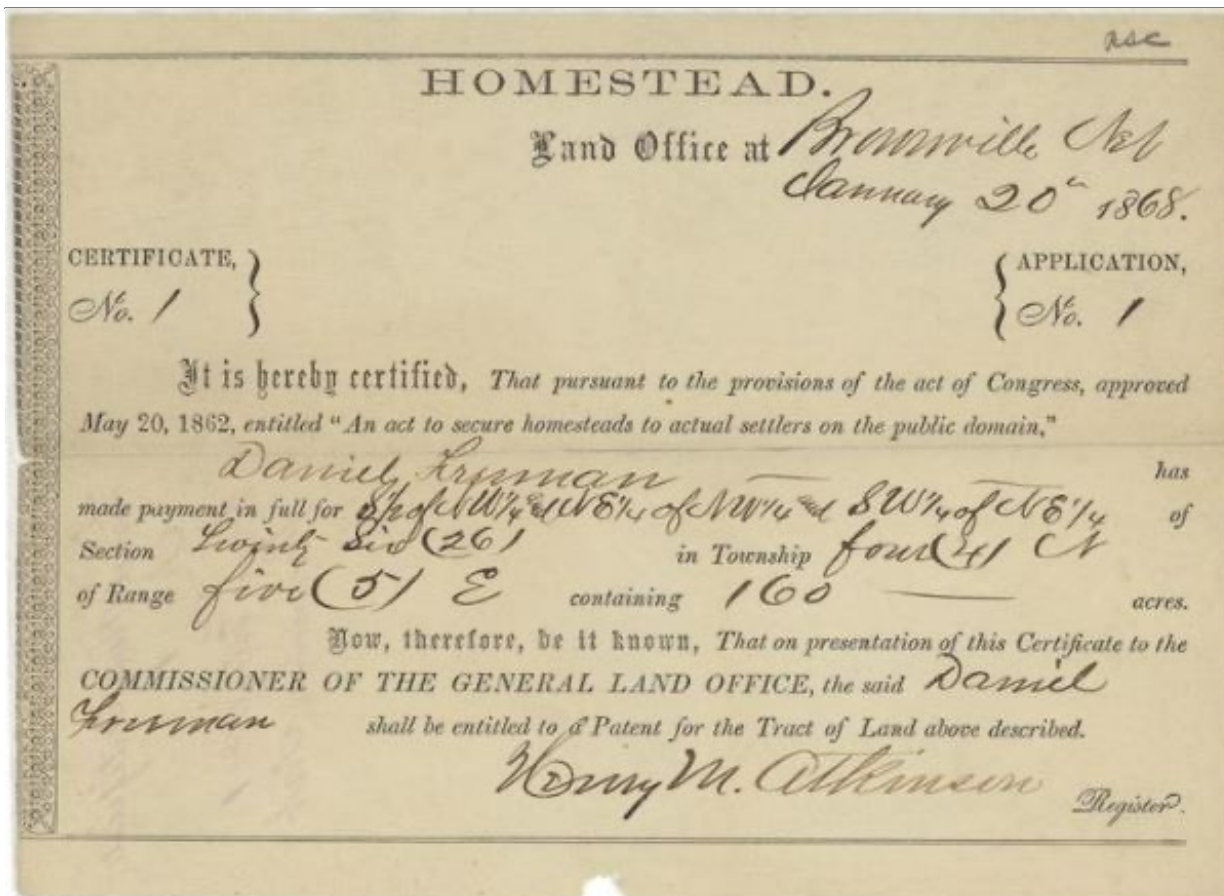 HOMESTEAD.
Land Office at Brownville Neb
January 20th 1868.
CERTIFICATE,
No. 1
APPLICATION,
No. 1
It is hereby certified, That pursuant to the provisions of the act of Congress, approved
May 20, 1862, entitled "An act to secure homesteads to actual settlers on the public domain,"
Daniel Freeman has
made payment in full for S½ of NW¼ and NE¼ of NW¼ and SW¼ of NE¼ of
Section Twenty Six (26) in Township four (4) N
of Range five (5) E containing 160 acres.
Now, therefore, be it known, That on presentation of this Certificate to the
COMMISSIONER OF THE GENERAL LAND OFFICE, the said Daniel
Freeman shall be entitled to a Patent for the Tract of Land above described.
Henry M. Atkinson
Register.